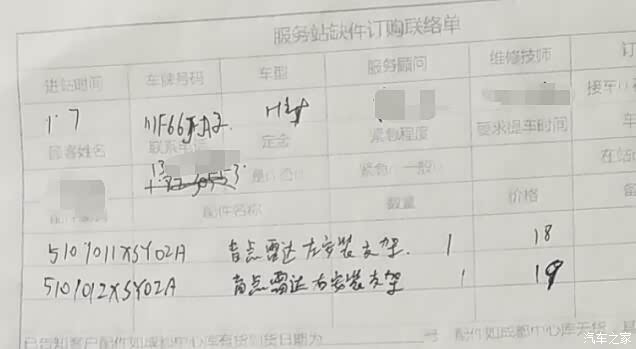 服务站缺件订购联络单
进站时间 车牌号码 车型 服务顾问 维修技师 订
1.7 接车
顾客姓名 联系电话 定金 紧急程度 要求提车时间 车
是( )否( ) 紧急( ) 一般( ) 在站
配件名称 数量 价格 备
5101011XSY02A 盲点雷达左安装支架. 1 18
5101012XSY02A 盲点雷达右安装支架 1 19
已告知客户配件如成都中心库有货到货日期为 号 配件如成都中心库无货
汽车之家